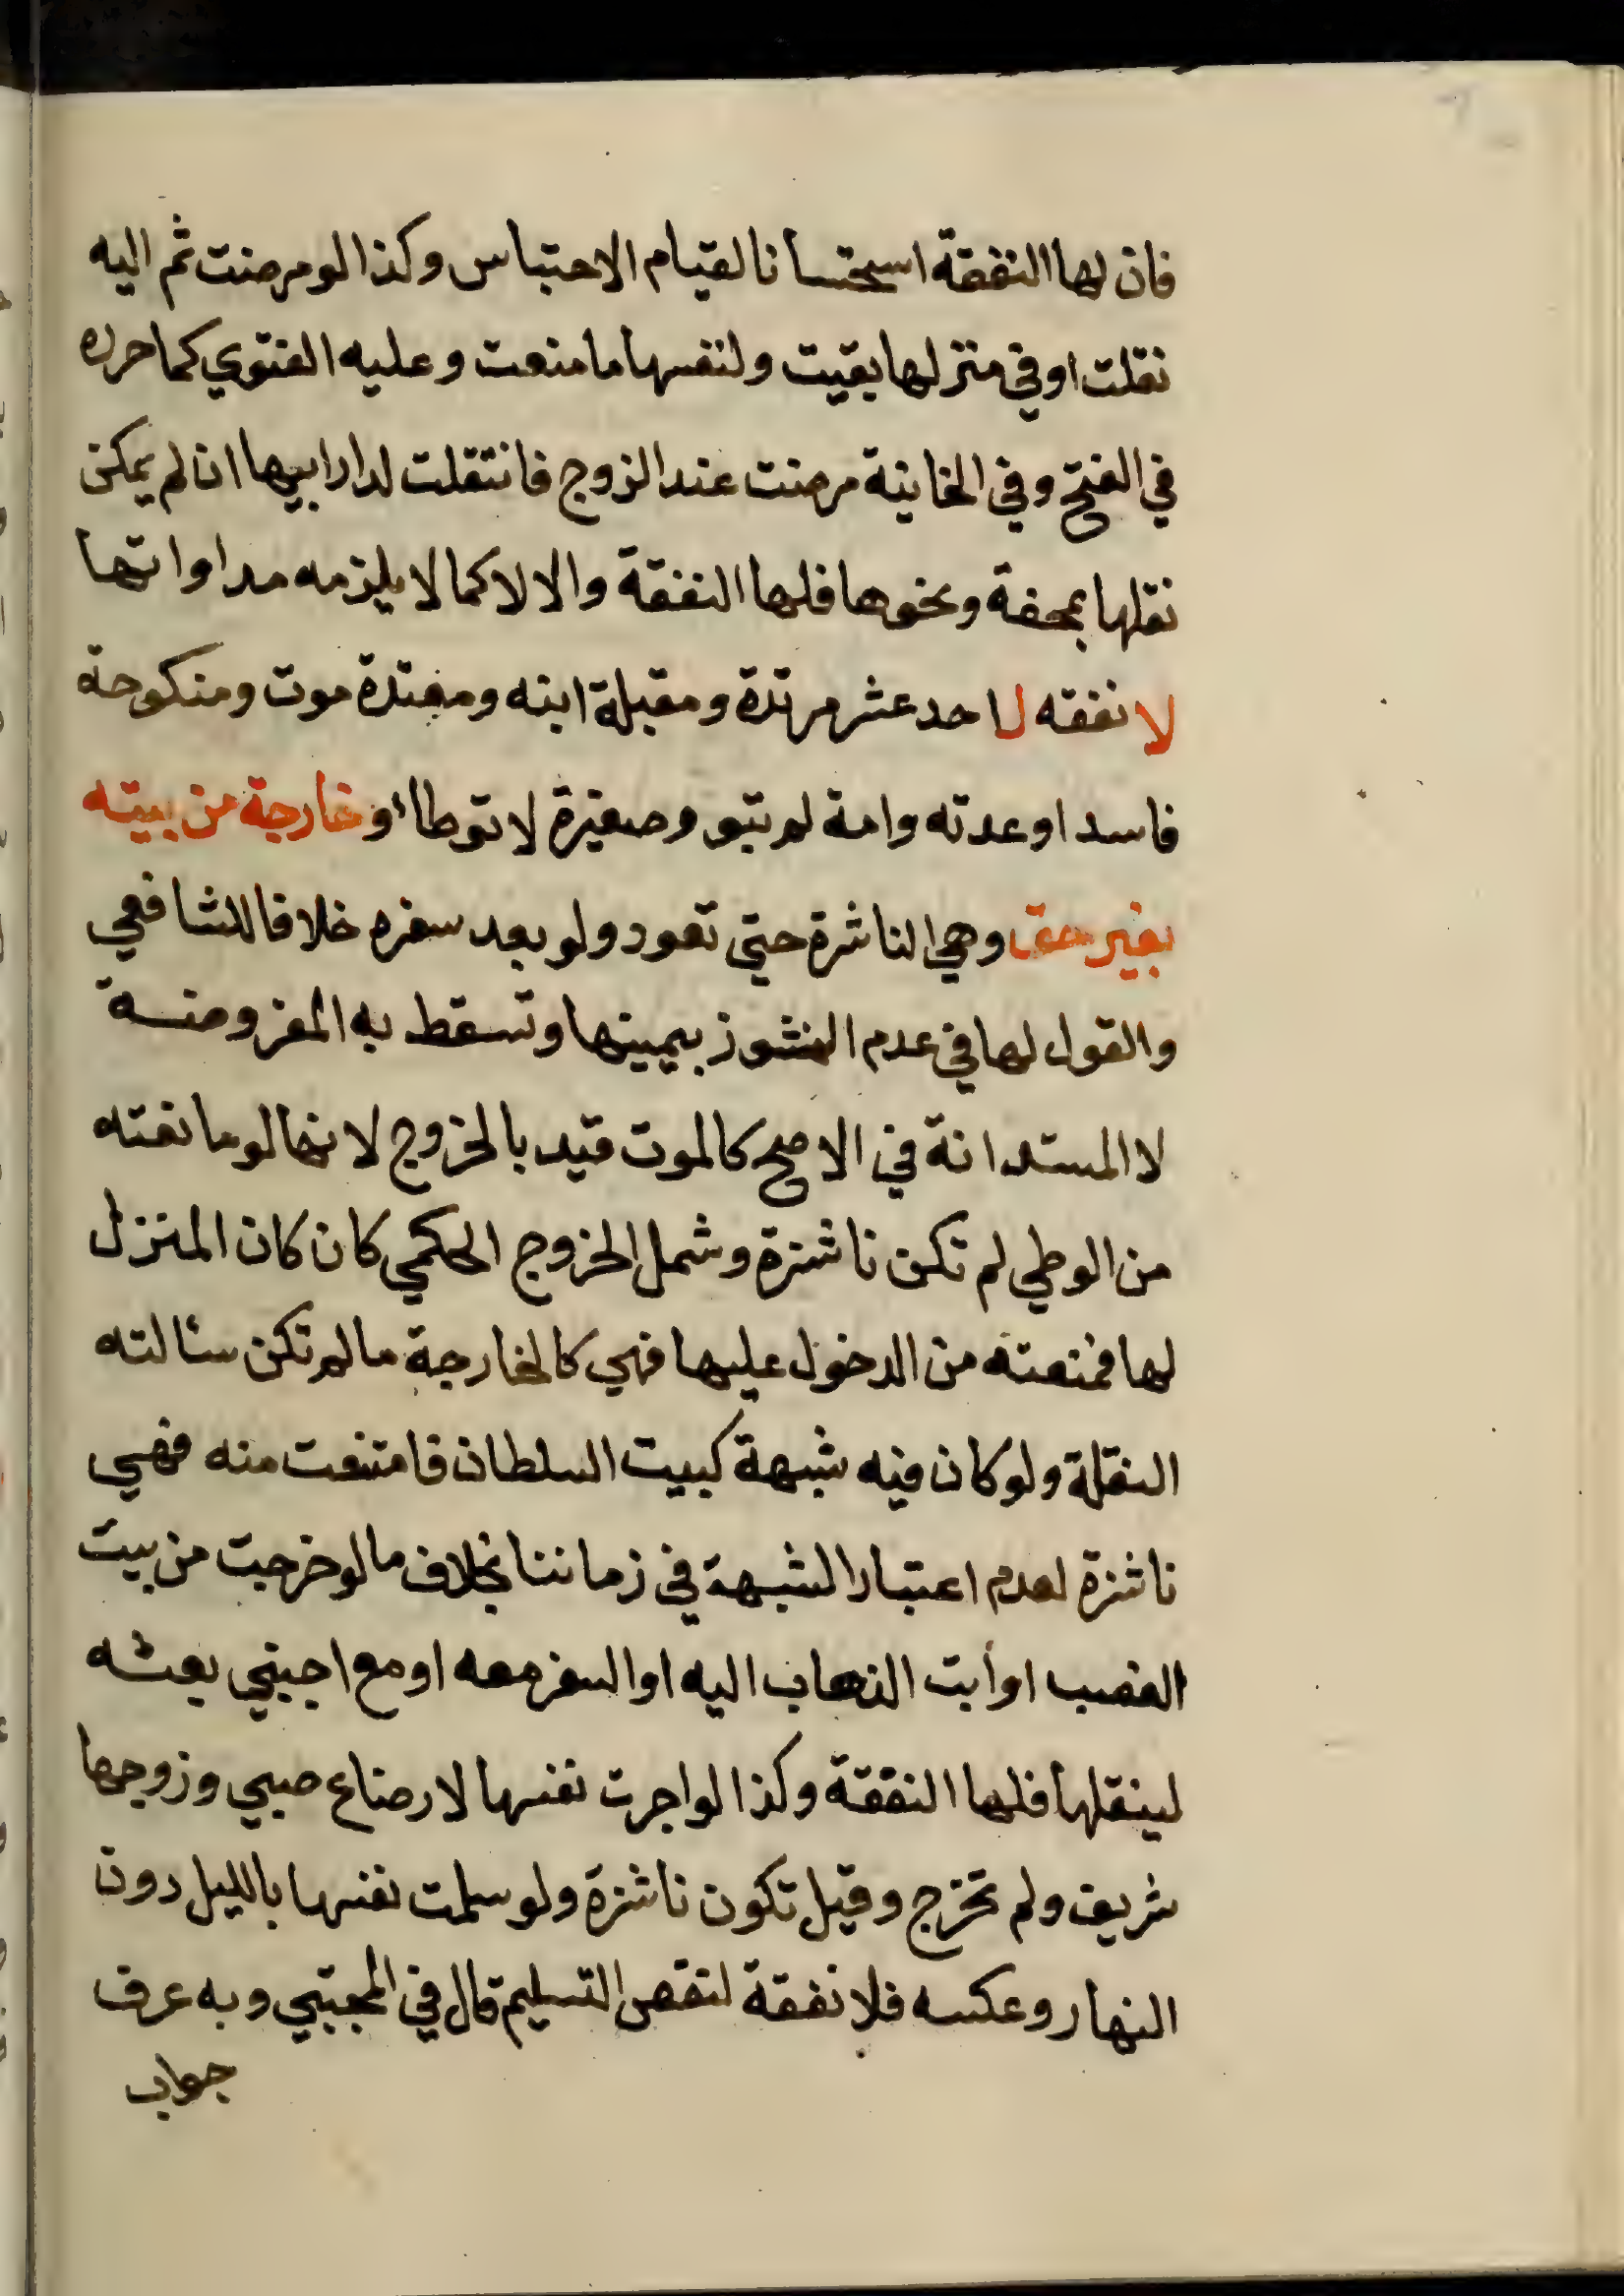 فان لها النفقة استحسانا لقيام الاحتباس وكذا لو مرضت ثم اليه
نقلت او في منزلها بقيت ولنفسها ما منعت وعليه الفتوي كما حرره
في الفتح وفي الخانية مرضت عند الزوج فانتقلت لدار ابيها ان لم يمكن
نقلها بمحفة ونحوها فلها النفقة والا لا كما لا يلزمه مداواتها
لا نفقه لاحد عشر مرتدة ومقبلة ابنه ومعتدة موت ومنكوحة
فاسدا وعدته وامة لم تبو وصغيرة لا توطاء و خارجة من بيته
بغير حق وهي الناشزة حتي تعود ولو بعد سفره خلافا للشافعي
والقول لها في عدم النشوز بيمينها وتسقط به المفروضة
لا المستدانة في الاصح كالموت قيد بالخروج لانها لو مانعته
من الوطي لم تكن ناشزة وشمل الخروج الحكمي كان كان المنزل
لها فمنعته من الدخول عليها فهي كالخارجة ما لم تكن سئالته
النقلة ولو كان فيه شبهة كبيت السلطان فامتنعت منه فهي
ناشزة لعدم اعتبار الشبهة في زماننا بخلاف ما لو خرجت من بيت
الغصب او أبت الذهاب اليه او السفر معه او مع اجنبي بعثه
لينقلها فلها النفقة وكذا لو اجرت نفسها لارضاع صبي وزوجها
شريف ولم تخرج وقيل تكون ناشزة ولو سلمت نفسها بالليل دون
النهار وعكسه فلا نفقة لنقص التسليم قال في المجتبي وبه عرف
جواب